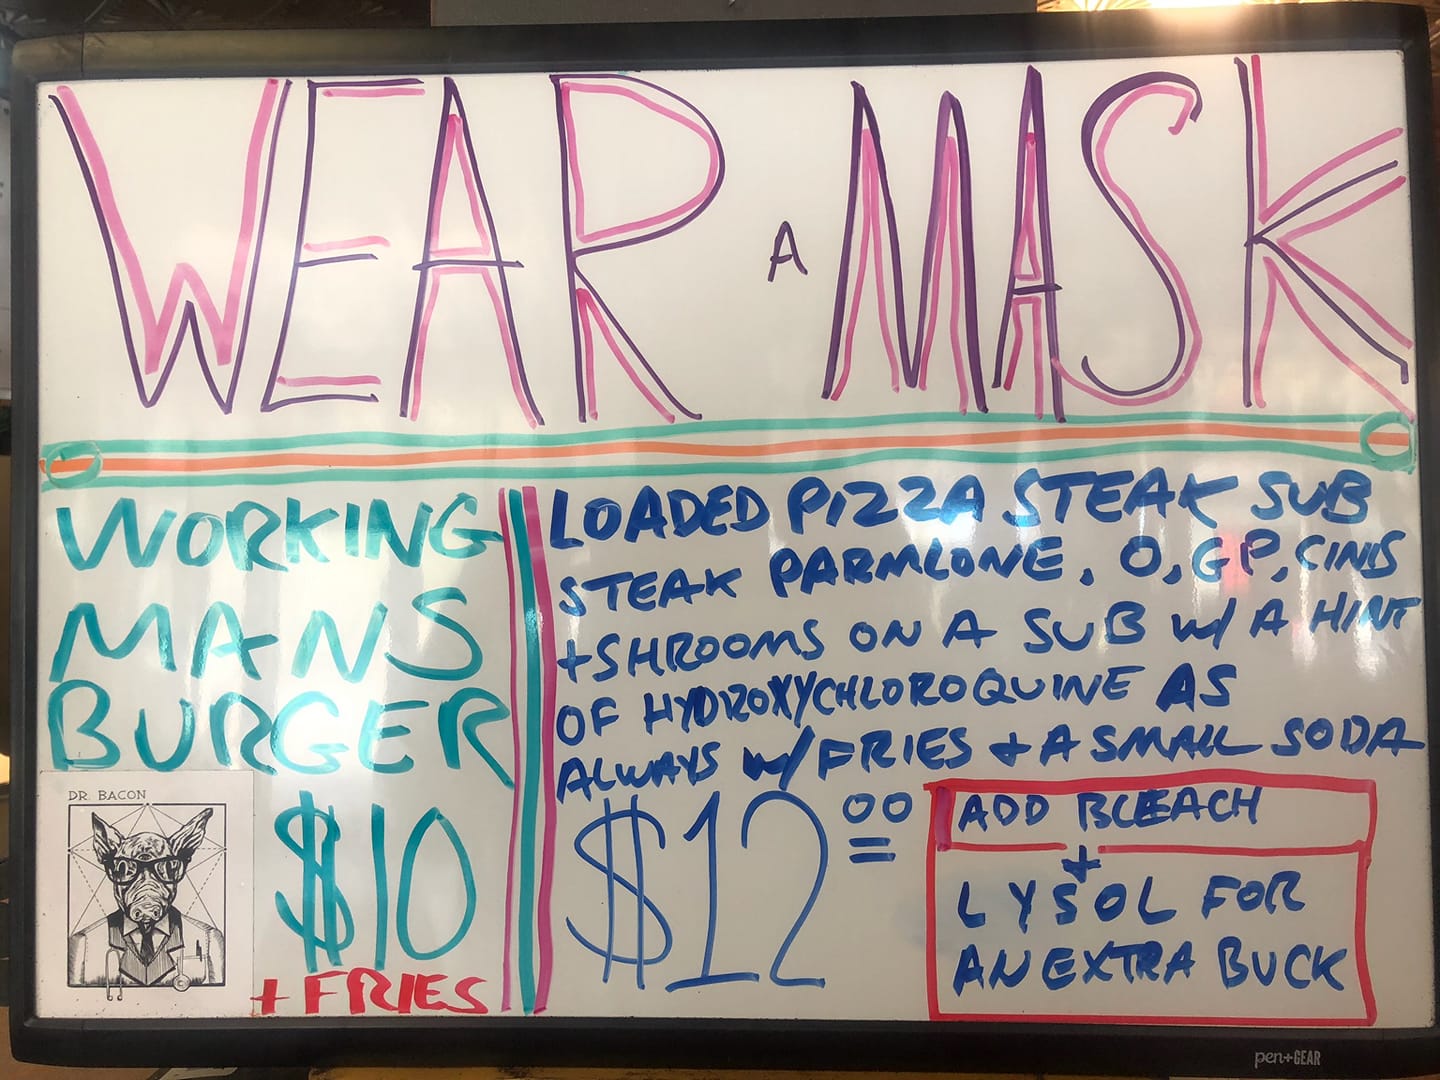 WEAR A MASK
WORKING
MANS
BURGER
$10
+ FRIES
DR. BACON
LOADED PIZZA STEAK SUB
STEAK PARMLONE, O, GP, CINIS
+SHROOMS ON A SUB W/ A HINT
OF HYDROXYCHLOROQUINE AS
ALWAYS W/ FRIES + A SMALL SODA
$12.00
ADD BLEACH
+
LYSOL FOR
AN EXTRA BUCK
pen+GEAR